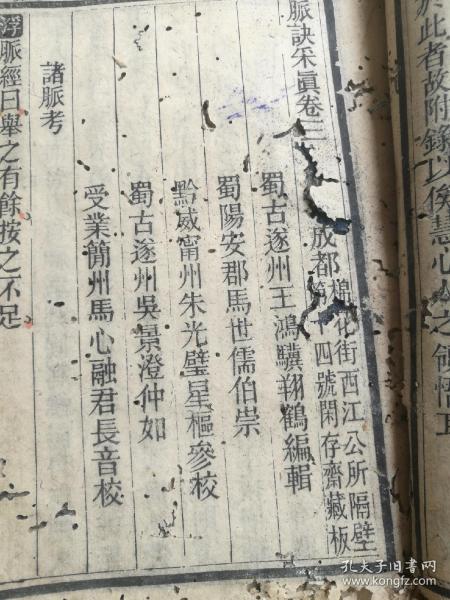 於此者故附錄以俟慧心人之領悟耳
脈訣采眞卷三
成都棉花街西江公所隔壁
第十四號閑存齋藏板
蜀古遂州王鴻驥翔鶴編輯
蜀陽安郡馬世儒伯崇
黔威甯州朱光璧星樞參校
蜀古遂州吳景澄仲如
受業簡州馬心融君長音校
諸脈考
浮脈經曰舉之有餘按之不足
孔夫子旧书网
www.kongfz.com